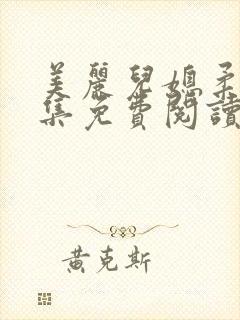 美麗兒媳柔
集免費閱讀
黃克斯